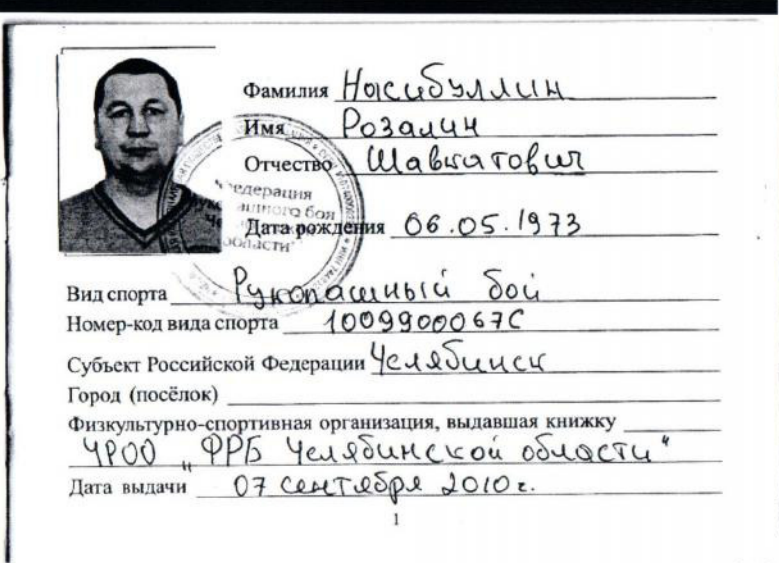 Фамилия Насибуллин
Имя Розалин
Отчество Шавкатович
Федерация
рукопашного боя
области
Дата рождения 06.05.1973
Вид спорта Рукопашный бой
Номер-код вида спорта 1009900067С
Субъект Российской Федерации Челябинск
Город (посёлок)
Физкультурно-спортивная организация, выдавшая книжку
ЧРОО „ФРБ Челябинской области"
Дата выдачи 07 сентября 2010 г.
1